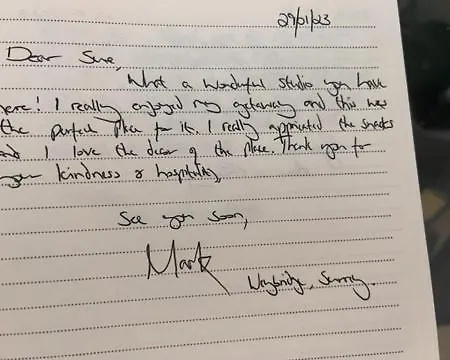 29/01/23
Dear Sue,
What a wonderful studio you have
here! I really enjoyed my getaway and this was
the perfect place for it. I really appriated the snacks
and I love the decor of the place. Thank you for
your kindness & hospitality,
See you soon,
Mark
Weybridge, Surrey.